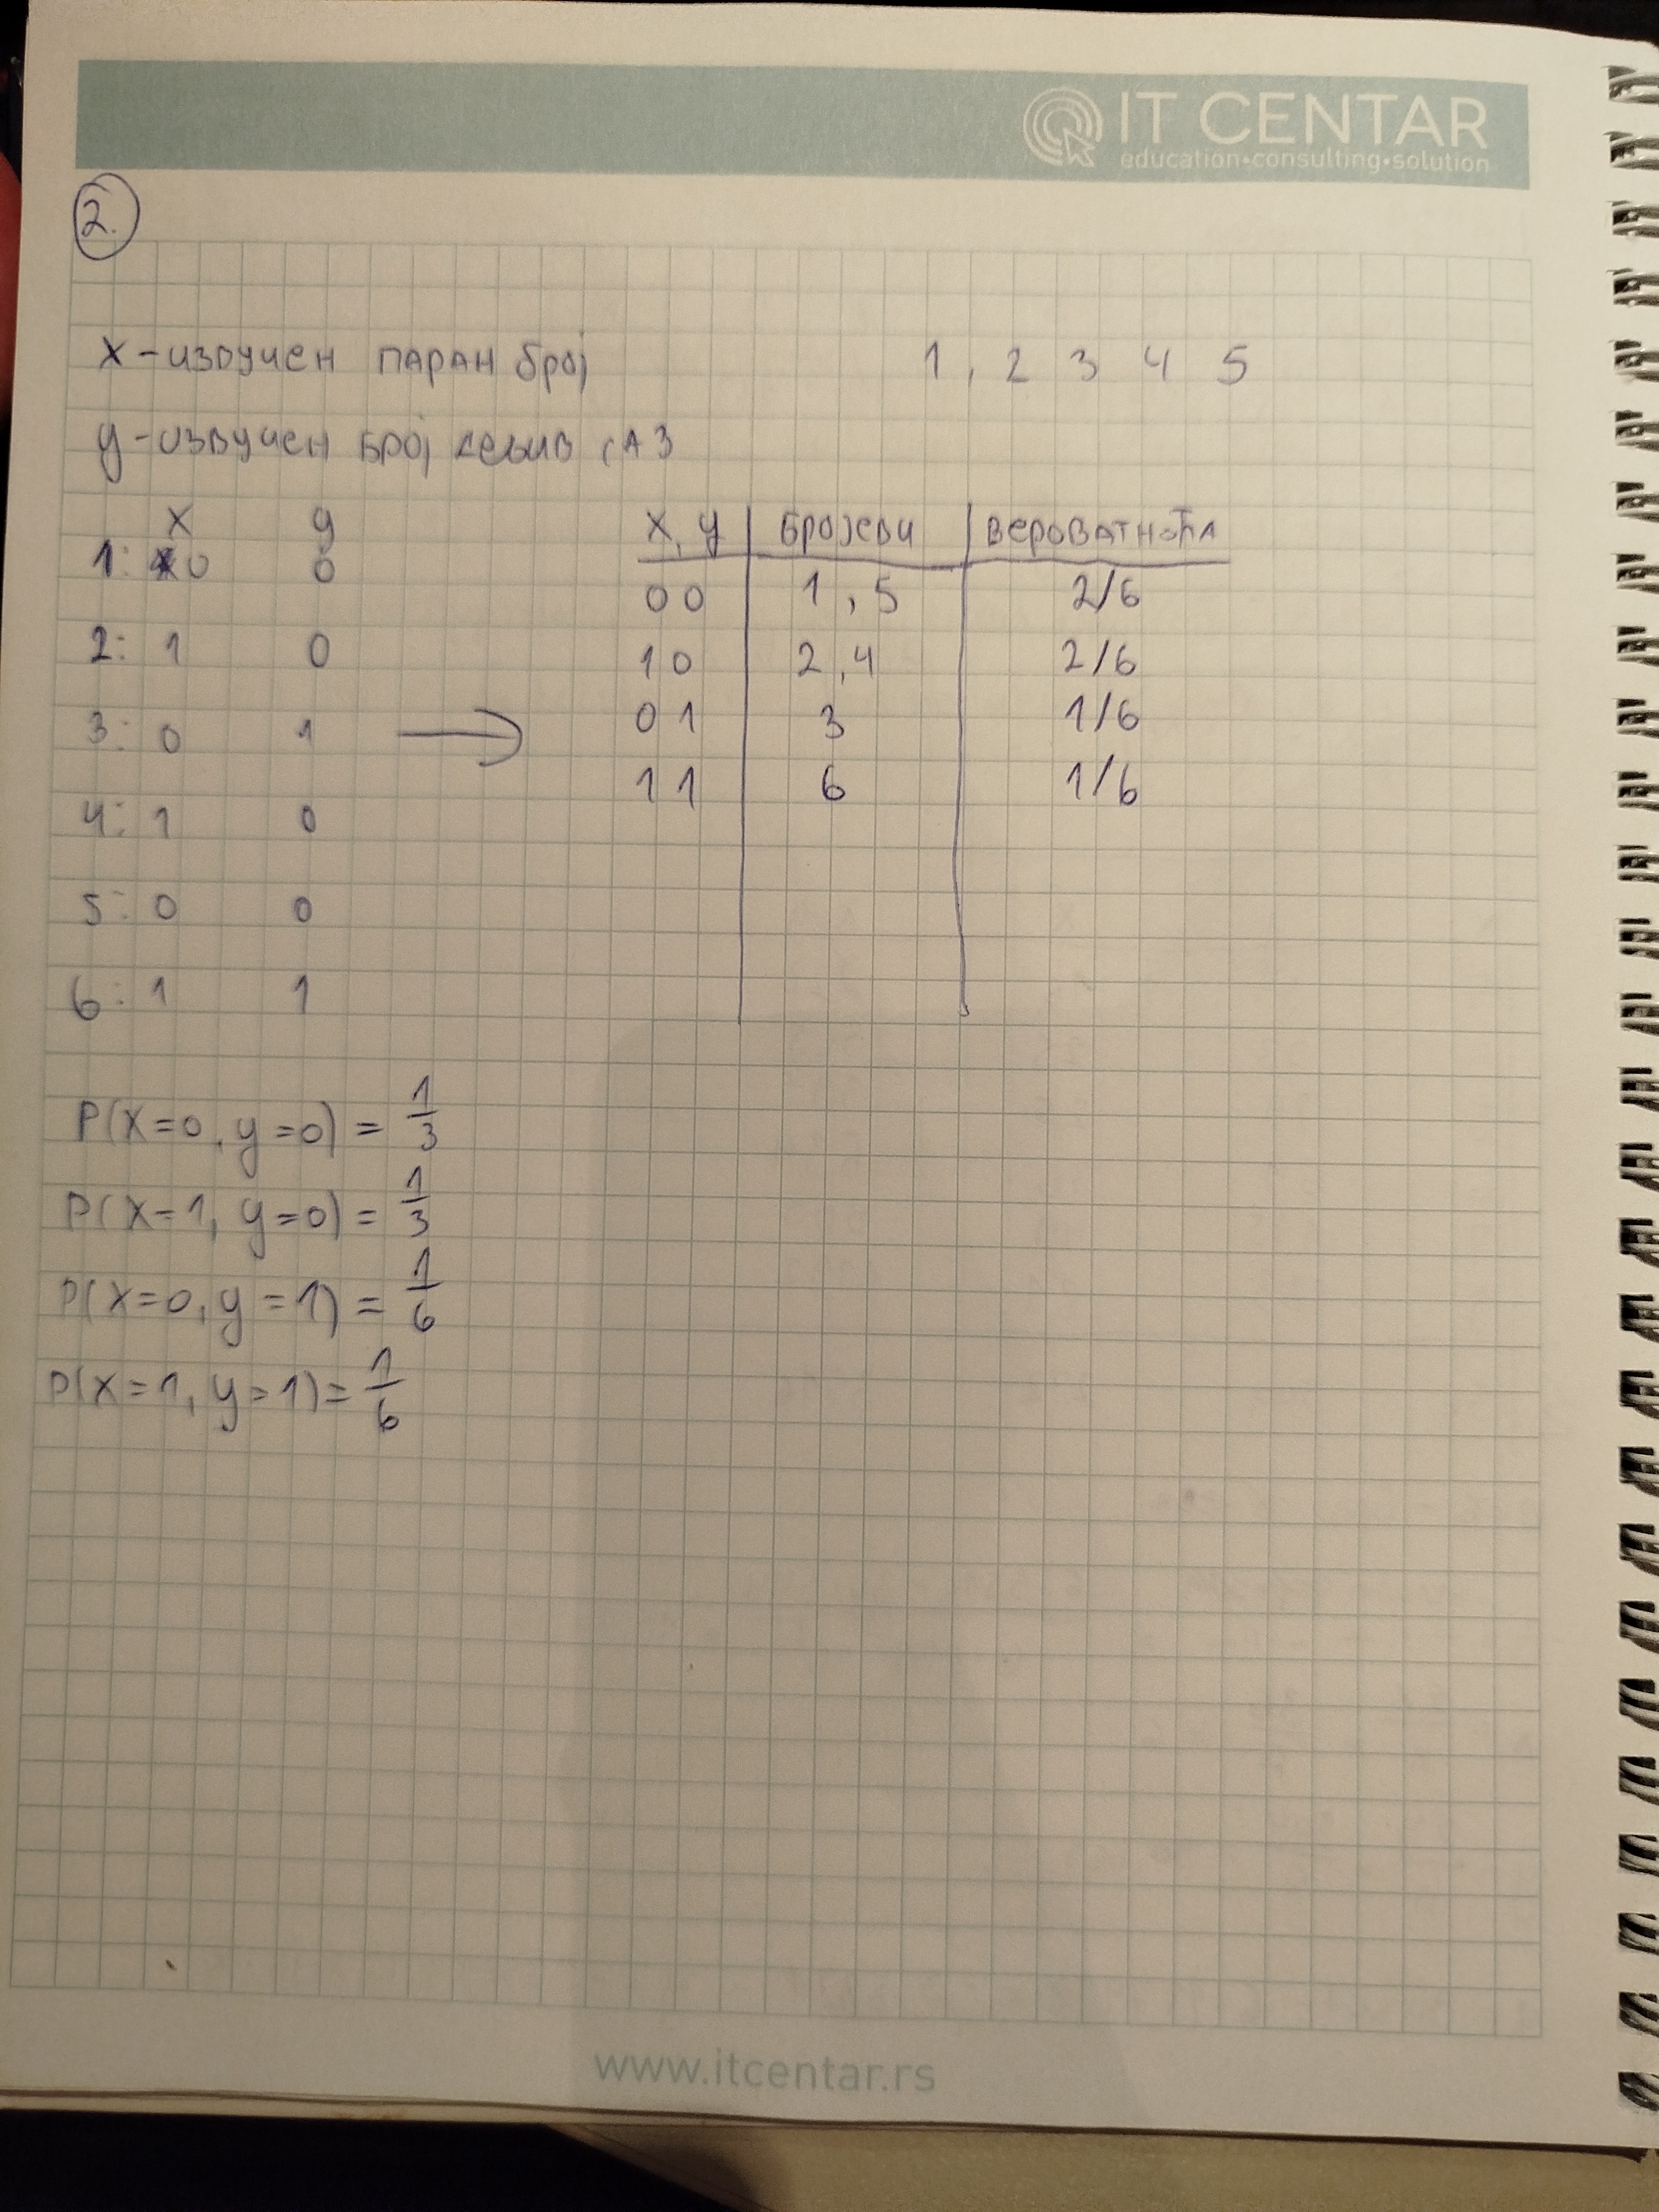 IT CENTAR
education•consulting•solution
2.
X - извучен паран број
1, 2 3 4 5
y - извучен број дељив са 3
x y
1: 0 0
2: 1 0
3: 0 1
4: 1 0
5: 0 0
6: 1 1
→
x, y бројеви вероватноћа
0 0 1, 5 2/6
1 0 2, 4 2/6
0 1 3 1/6
1 1 6 1/6
P(X=0, y=0) = 1/3
P(X=1, y=0) = 1/3
P(X=0, y=1) = 1/6
P(X=1, y=1) = 1/6
www.itcentar.rs